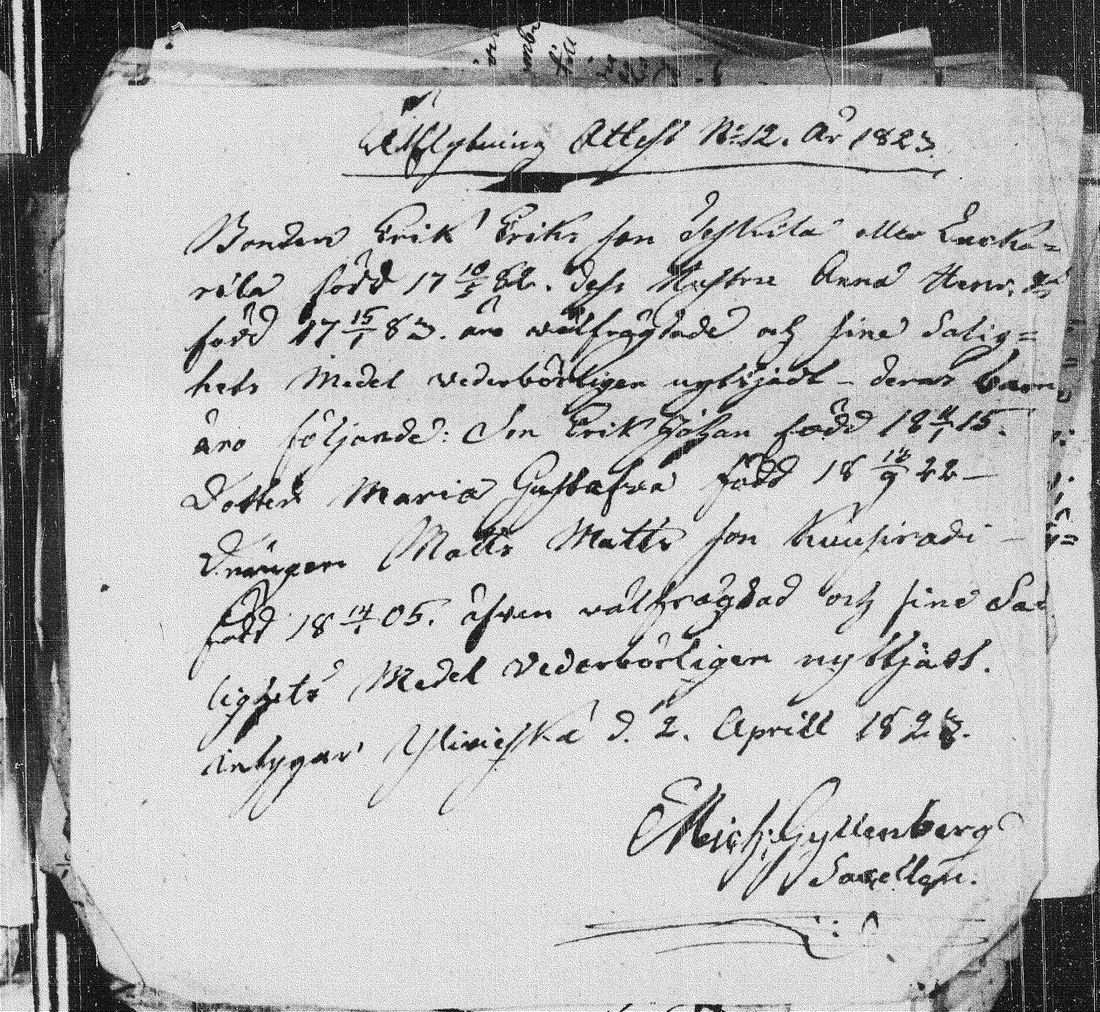 Utflyttning Attest No 12. År 1823.
Bonden Erik Eriks son eller Laska=
rila född 17 10/5 82. dess Hustru Anna Henr. dr
född 17 15/1 83. äro välfrägdade och sine Salig=
hets Medel vederbörligen nyttjadt - deras barn
äro följande: Son Erik Johan född 18 11/1 15.
Dotter Maria Gustafva född 18 18/9 22 -
Drängen Matts Matts son -
född 18 14/1 05. äfven välfrägdad och sine Sa
lighets Medel vederbörligen nyttjadt.
intygar d. 2. Aprill 1823.
Mich: Gyllenberg
Sacellan.